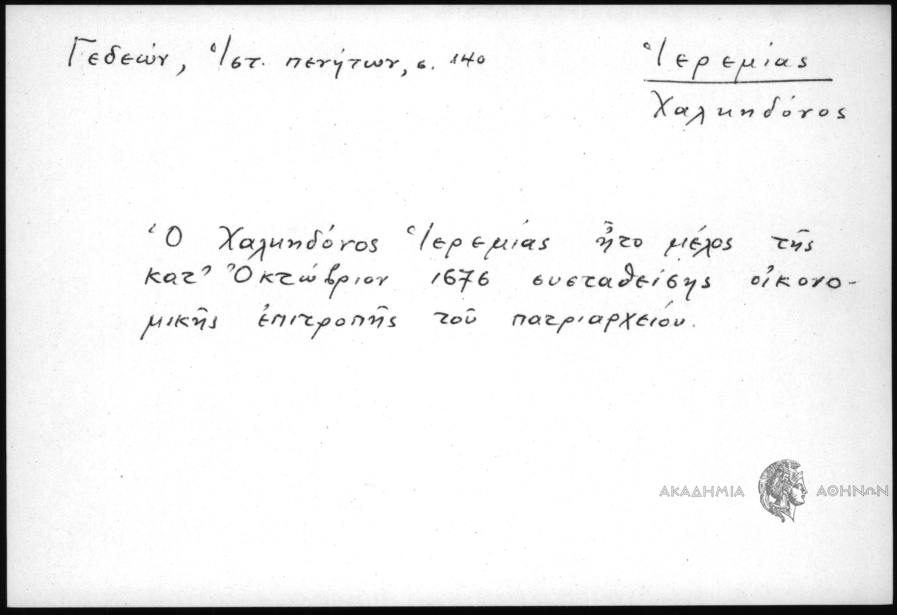 Γεδεών, Ἱστ. πενήτων, σ. 140
Ἱερεμίας
Χαλκηδόνος
Ὁ Χαλκηδόνος Ἱερεμίας ἦτο μέλος τῆς
κατ' Ὀκτώβριον 1676 συσταθείσης οἰκονο-
μικῆς ἐπιτροπῆς τοῦ πατριαρχείου.
ΑΚΑΔΗΜΙΑ ΑΘΗΝΩΝ